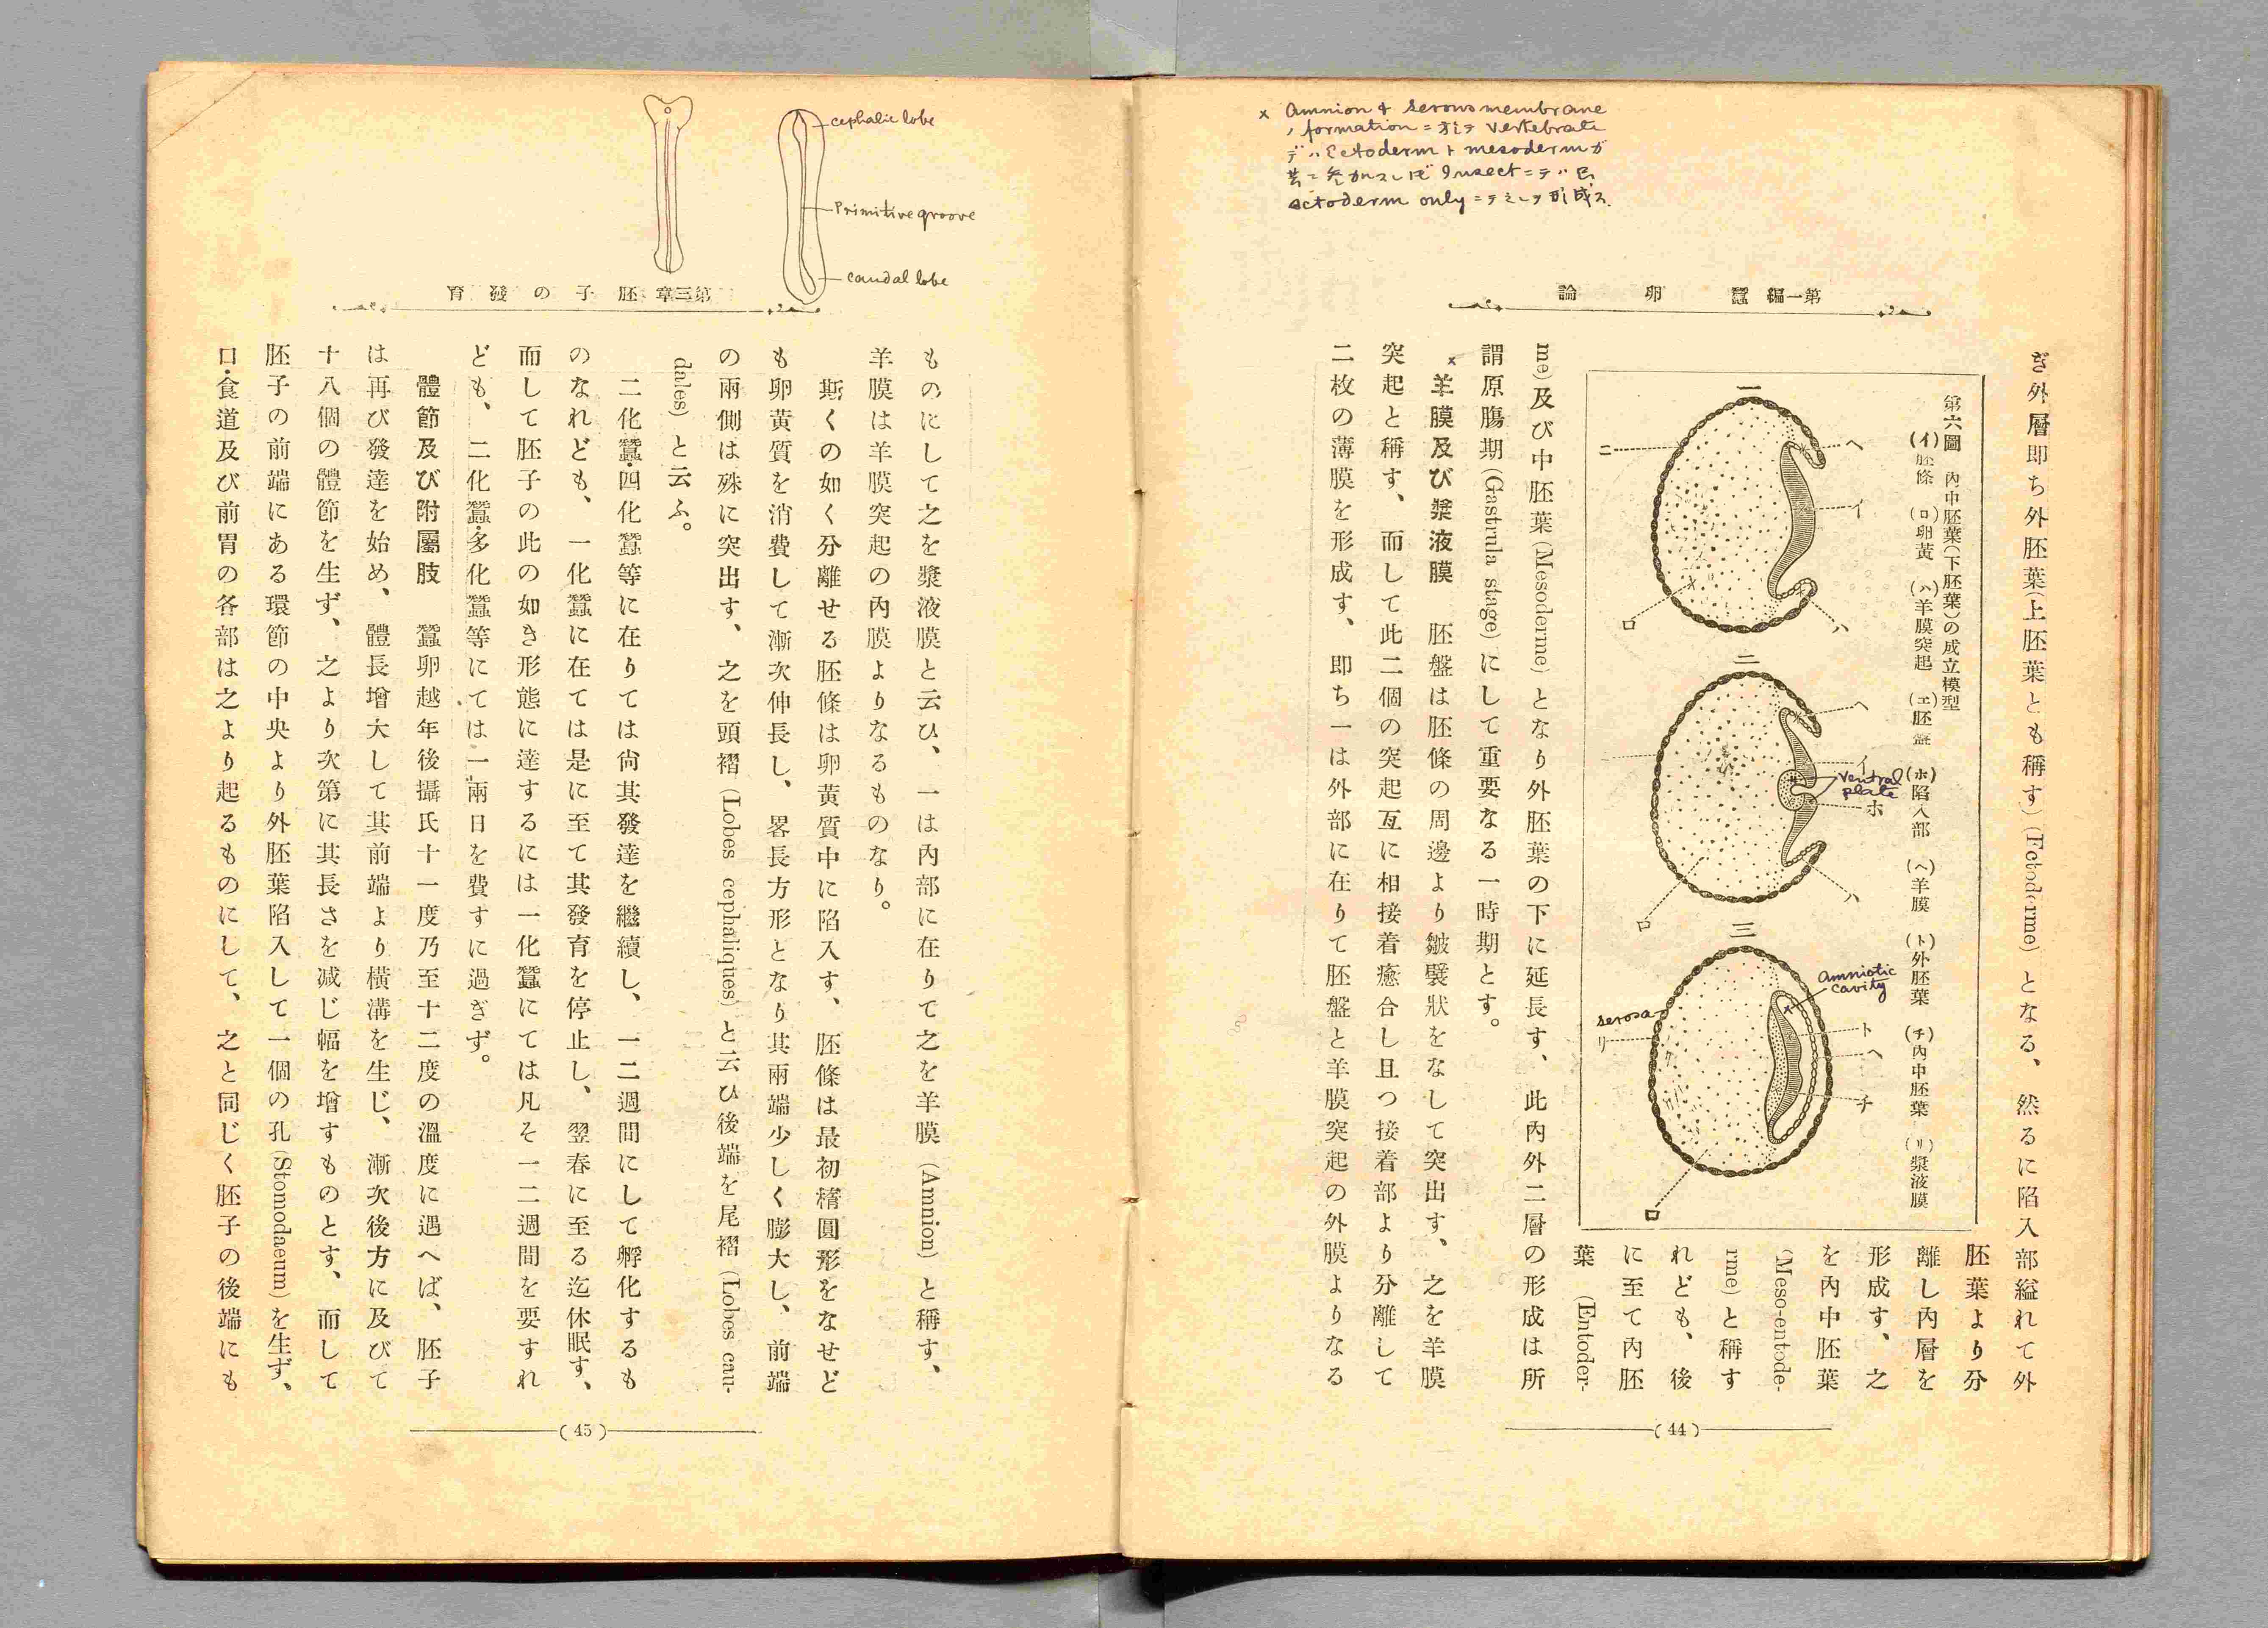 × Amnion & serous membrane
ノ formation ニ於テ vertebrate
デハ Ectoderm ト mesoderm ガ
共ニ参加スレド Insect ニテハ
ectoderm only ニテ 形成ス.
第一編 蠶卵論
ぎ外層即ち外胚葉(上胚葉とも稱す)(Ectoderme)となる、然るに陷入部縊れて外
胚葉より分
離し內層を
形成す、之
を內中胚葉
(Meso-entode-
rme)と稱す
れども、後
に至て內胚
葉 (Entoder-
第六圖 內中胚葉(下胚葉)の成立模型
(イ)胚條 (ロ)卵黃 (ハ)羊膜突起 (ニ)胚盤 (ホ)陷入部 (ヘ)羊膜 (ト)外胚葉 (チ)內中胚葉 (リ)漿液膜
一
ヘ
イ
ニ
ロ
ハ
二
ヘ
イ
ventral
plate
ホ
ロ
ハ
三
Amniotic
cavity
serosa
リ
ト
ヘ
チ
ロ
me)及び中胚葉(Mesoderme)となり外胚葉の下に延長す、此內外二層の形成は所
謂原膓期(Gastrula stage)にして重要なる一時期とす。
× 羊膜及び漿液膜 胚盤は胚條の周邊より皺襞狀をなして突出す、之を羊膜
突起と稱す、而して此二個の突起互に相接着癒合し且つ接着部より分離して
二枚の薄膜を形成す、卽ち一は外部に在りて胚盤と羊膜突起の外膜よりなる
(44)
cephalic lobe
Primitive groove
caudal lobe
第三章 胚子の發育
ものにして之を漿液膜と云ひ、一は內部に在りて之を羊膜 (Amnion) と稱す、
羊膜は羊膜突起の內膜よりなるものなり。
斯くの如く分離せる胚條は卵黃質中に陷入す、胚條は最初橢圓形をなせど
も卵黃質を消費して漸次伸長し、畧長方形となり其兩端少しく膨大し、前端
の兩側は殊に突出す、之を頭褶 (Lobes cephaliques) と云ひ後端を尾褶 (Lobes cau-
dales) と云ふ。
二化蠶・四化蠶等に在りては尙其發達を繼續し、一二週間にして孵化するも
のなれども、一化蠶に在ては是に至て其發育を停止し、翌春に至る迄休眠す、
而して胚子の此の如き形態に達するには一化蠶にては凡そ一二週間を要すれ
ども、二化蠶・多化蠶等にては一兩日を費すに過ぎず。
體節及び附屬肢 蠶卵越年後攝氏十一度乃至十二度の溫度に遇へば、胚子
は再び發達を始め、體長增大して其前端より橫溝を生じ、漸次後方に及びて
十八個の體節を生ず、之より次第に其長さを減じ幅を增すものとす、而して
胚子の前端にある環節の中央より外胚葉陷入して一個の孔(Stomodaeum)を生ず、
口・食道及び前胃の各部は之より起るものにして、之と同じく胚子の後端にも
(45)